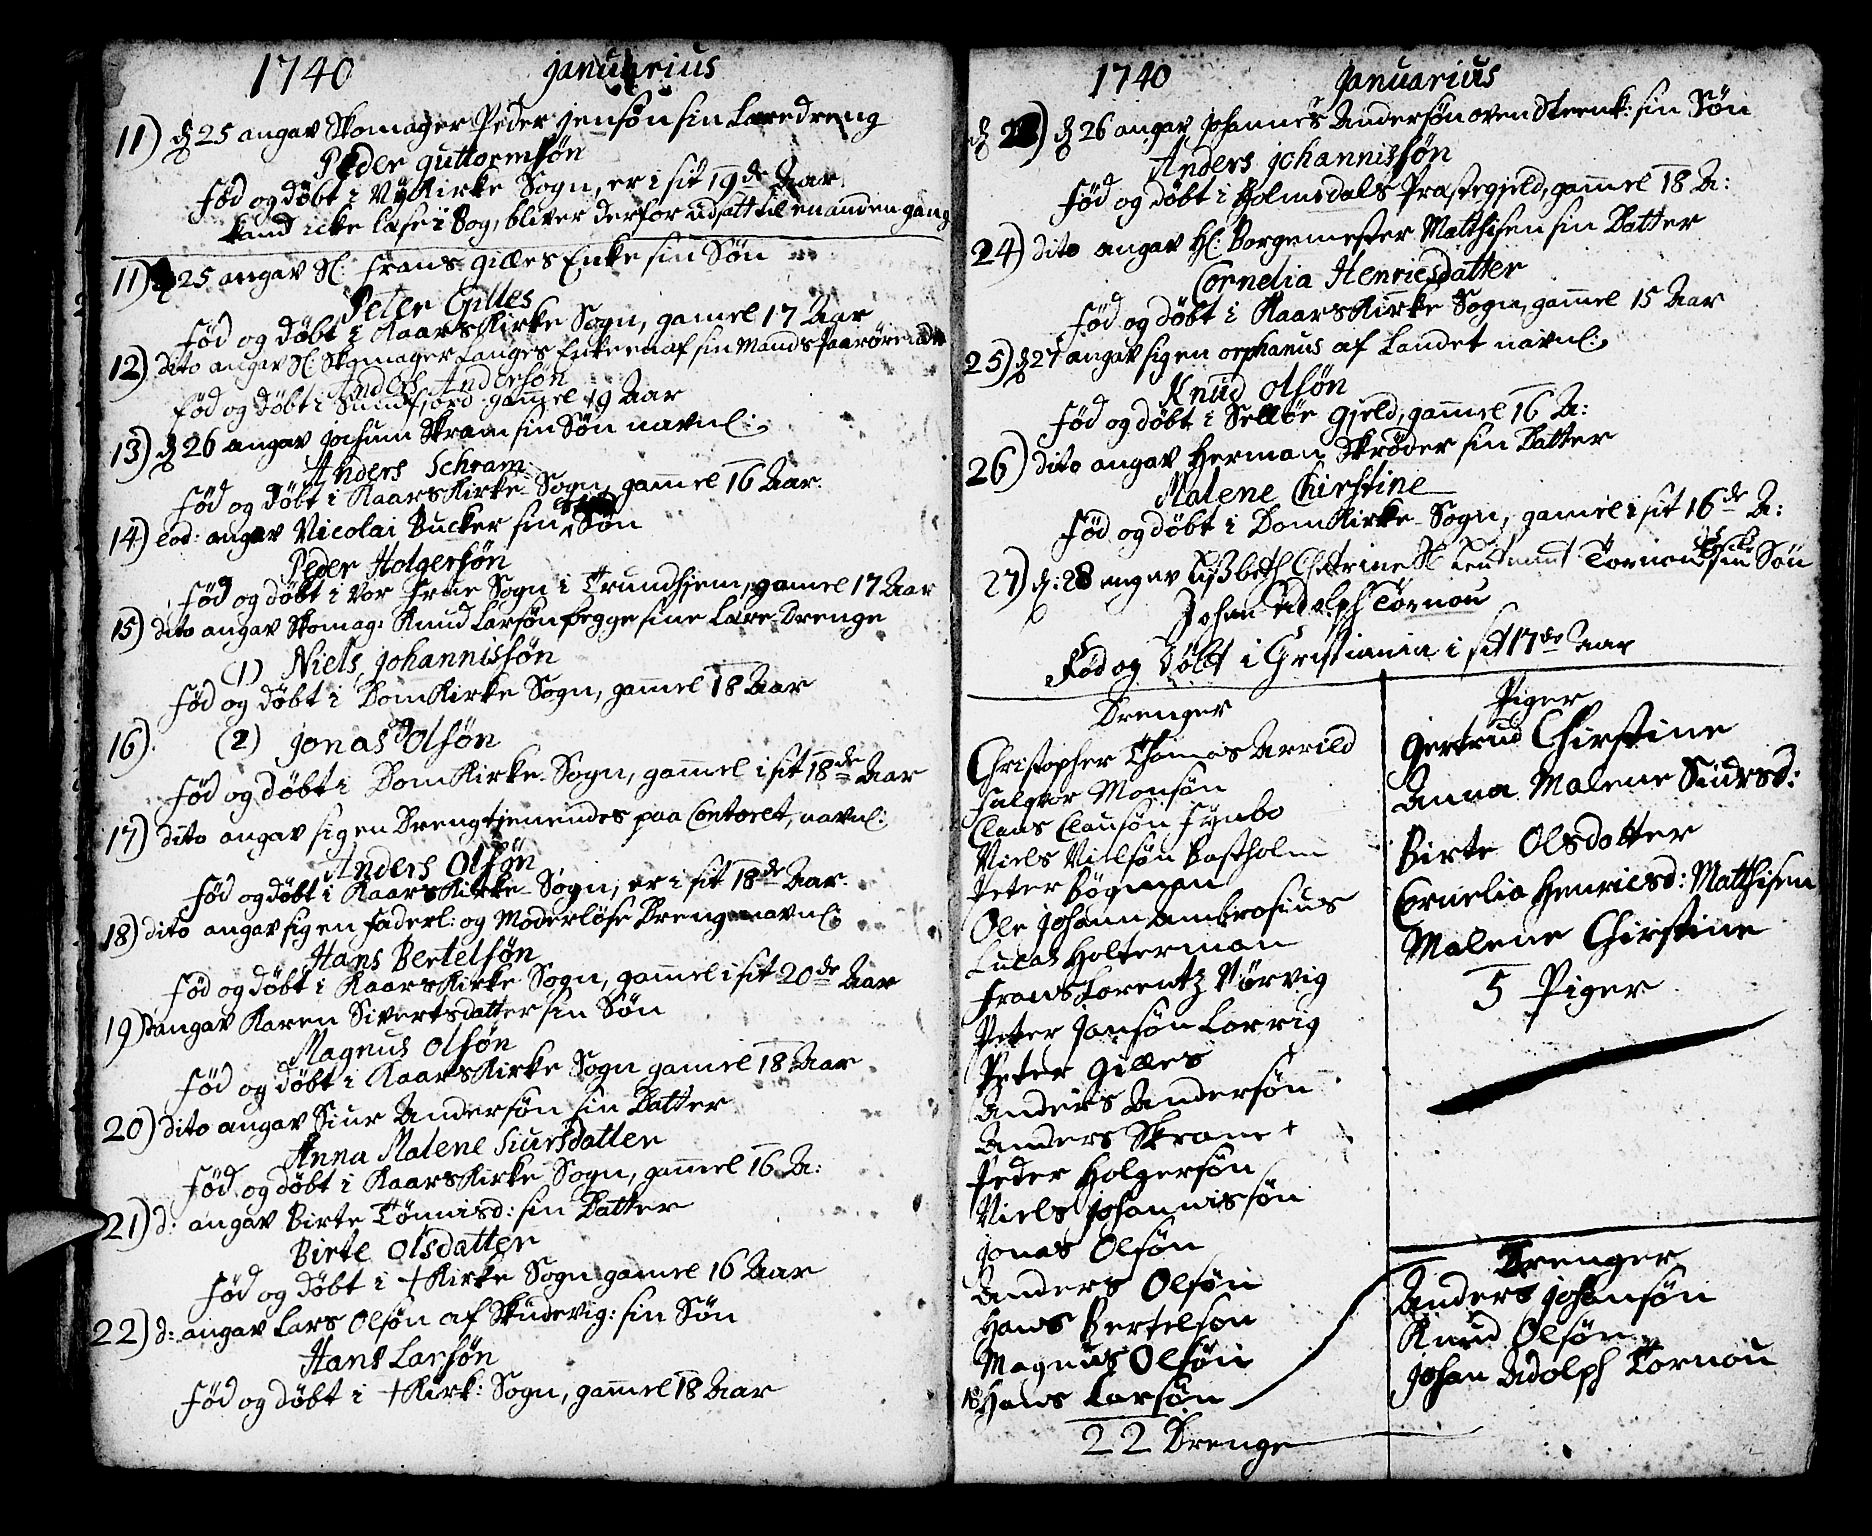 1740 januarius
11) d 25 angav Skomager Peder jensøn sin Læredreng
Peder guttormsøn
Fød og døbt i NyKirke Sogn, er i sit 19de Aar
kand icke læse i Bog, bliver derfor udsatt til en anden gang
11) 25 angav Sl: Frans gilles Enke sin Søn
Peter Gilles
Fød og døbt i KaarsKirke Sogn, gamel 17 Aar
12) dito angav Sl: Skomager Langes Enke en af sin Mands Paarørende
Anders Andersøn
fød og døbt i Sundfjord gamel 19 Aar
13) d 26 angav jochum Skram sin Søn navnl:
Anders Schram
Fød og døbt i KaarsKirke Sogn, gamel 16 Aar.
14) eod: angav Nicolai Bucker sin Søn
Peder Holgersøn
Fød og døbt i Vor Frue Sogn i Trundhjem, gamel 17 Aar
15) dito angav Skomag: Knud Larsøn begge sine Lære-Drenge
(1) Niels johannissøn
Fød og døbt i DomKirke Sogn, gamel 18 Aar
16) (2) jonas Olsøn
Fød og døbt i DomKirke Sogn, gamel i sit 18de Aar
17) dito angav sig en Dreng tjenendes paa Contoret, navnl:
Anders Olsøn
Fød og døbt i KaarsKirke Sogn, er i sit 18de Aar.
18) dito angav sig en Faderl: og Moderløse Dreng navnl:
Hans Bertelsøn
Fød og døbt i KaarsKirke Sogn, gamel i sit 20de Aar
19) d angav Karen Sivertsdatter sin Søn
Magnus Olsøn
Fød og døbt i KaarsKirke Sogn gamel 18 Aar
20) dito angav Siur Andersøn sin Datter
Anna Malene Siursdatter
Fød og døbt i KaarsKirke Sogn, gamel 16 A:
21) d: angav Birte Tønnisd: sin Datter
Birte Olsdatter
Fød og døbt i +Kirke Sogn gamel 16 Aar
22) d: angav Lars Olsøn af Skudevig: sin Søn
Hans Larsøn
Fød og døbt i +Kirk: Sogn, gamel 18 Aar
1740 Januarius
d 26 angav johannes Andersøn oven Steenk: sin Søn
Anders johannissøn
Fød og døbt i Holmedals Præstegjeld, gamel 18 A:
24) dito angav H: Borgemester Matthisen sin Datter
Cornelia Henriesdatter
Fød og døbt i KaarsKirke Sogn, gamel 15 Aar
25) d 27 angav sig en orphanus af Landet navnl:
Knud Olsøn
Fød og døbt i Selløe gjeld, gamel 16 A:
26) dito angav Herman Skrøder sin Datter
Malene Chirstine
Fød og døbt i DomKirke Sogn, gamel i sit 16de A:
27) d: 28 angav Lissbeth Chatrine Sl Leutnant Tornous sin Søn
Johan Adolph Tornou
Fød og Døbt i Christiania i sit 17de Aar
Drenger
Christopher Thomas Arrild
Falqvor Monsøn
Claus Clausøn Fynbo
Niels Nielsøn Bastholm
Peter Bøgman
Ole johann Ambrosius
Lucas Holterman
Frans Lorentz Nørvig
Peter Jansøn Lorrig
Peter Gilles
Anders Andersøn
Anders Skram +
Peder Holgersøn
Niels johannissøn
jonas Olsøn
Anders Olsøn
Hans Bertelsøn
Magnus Olsøn
Hans Larsøn
22 Drenge
Piger
gertrud Chirstine
Anna Malene Siursd:
Birte Olsdatter
Cornelia Henriesd: Matthisen
Malene Chirstine
5 Piger
Drenger
Anders johansøn
Knud Olsøn
Johan Adolph Tornou